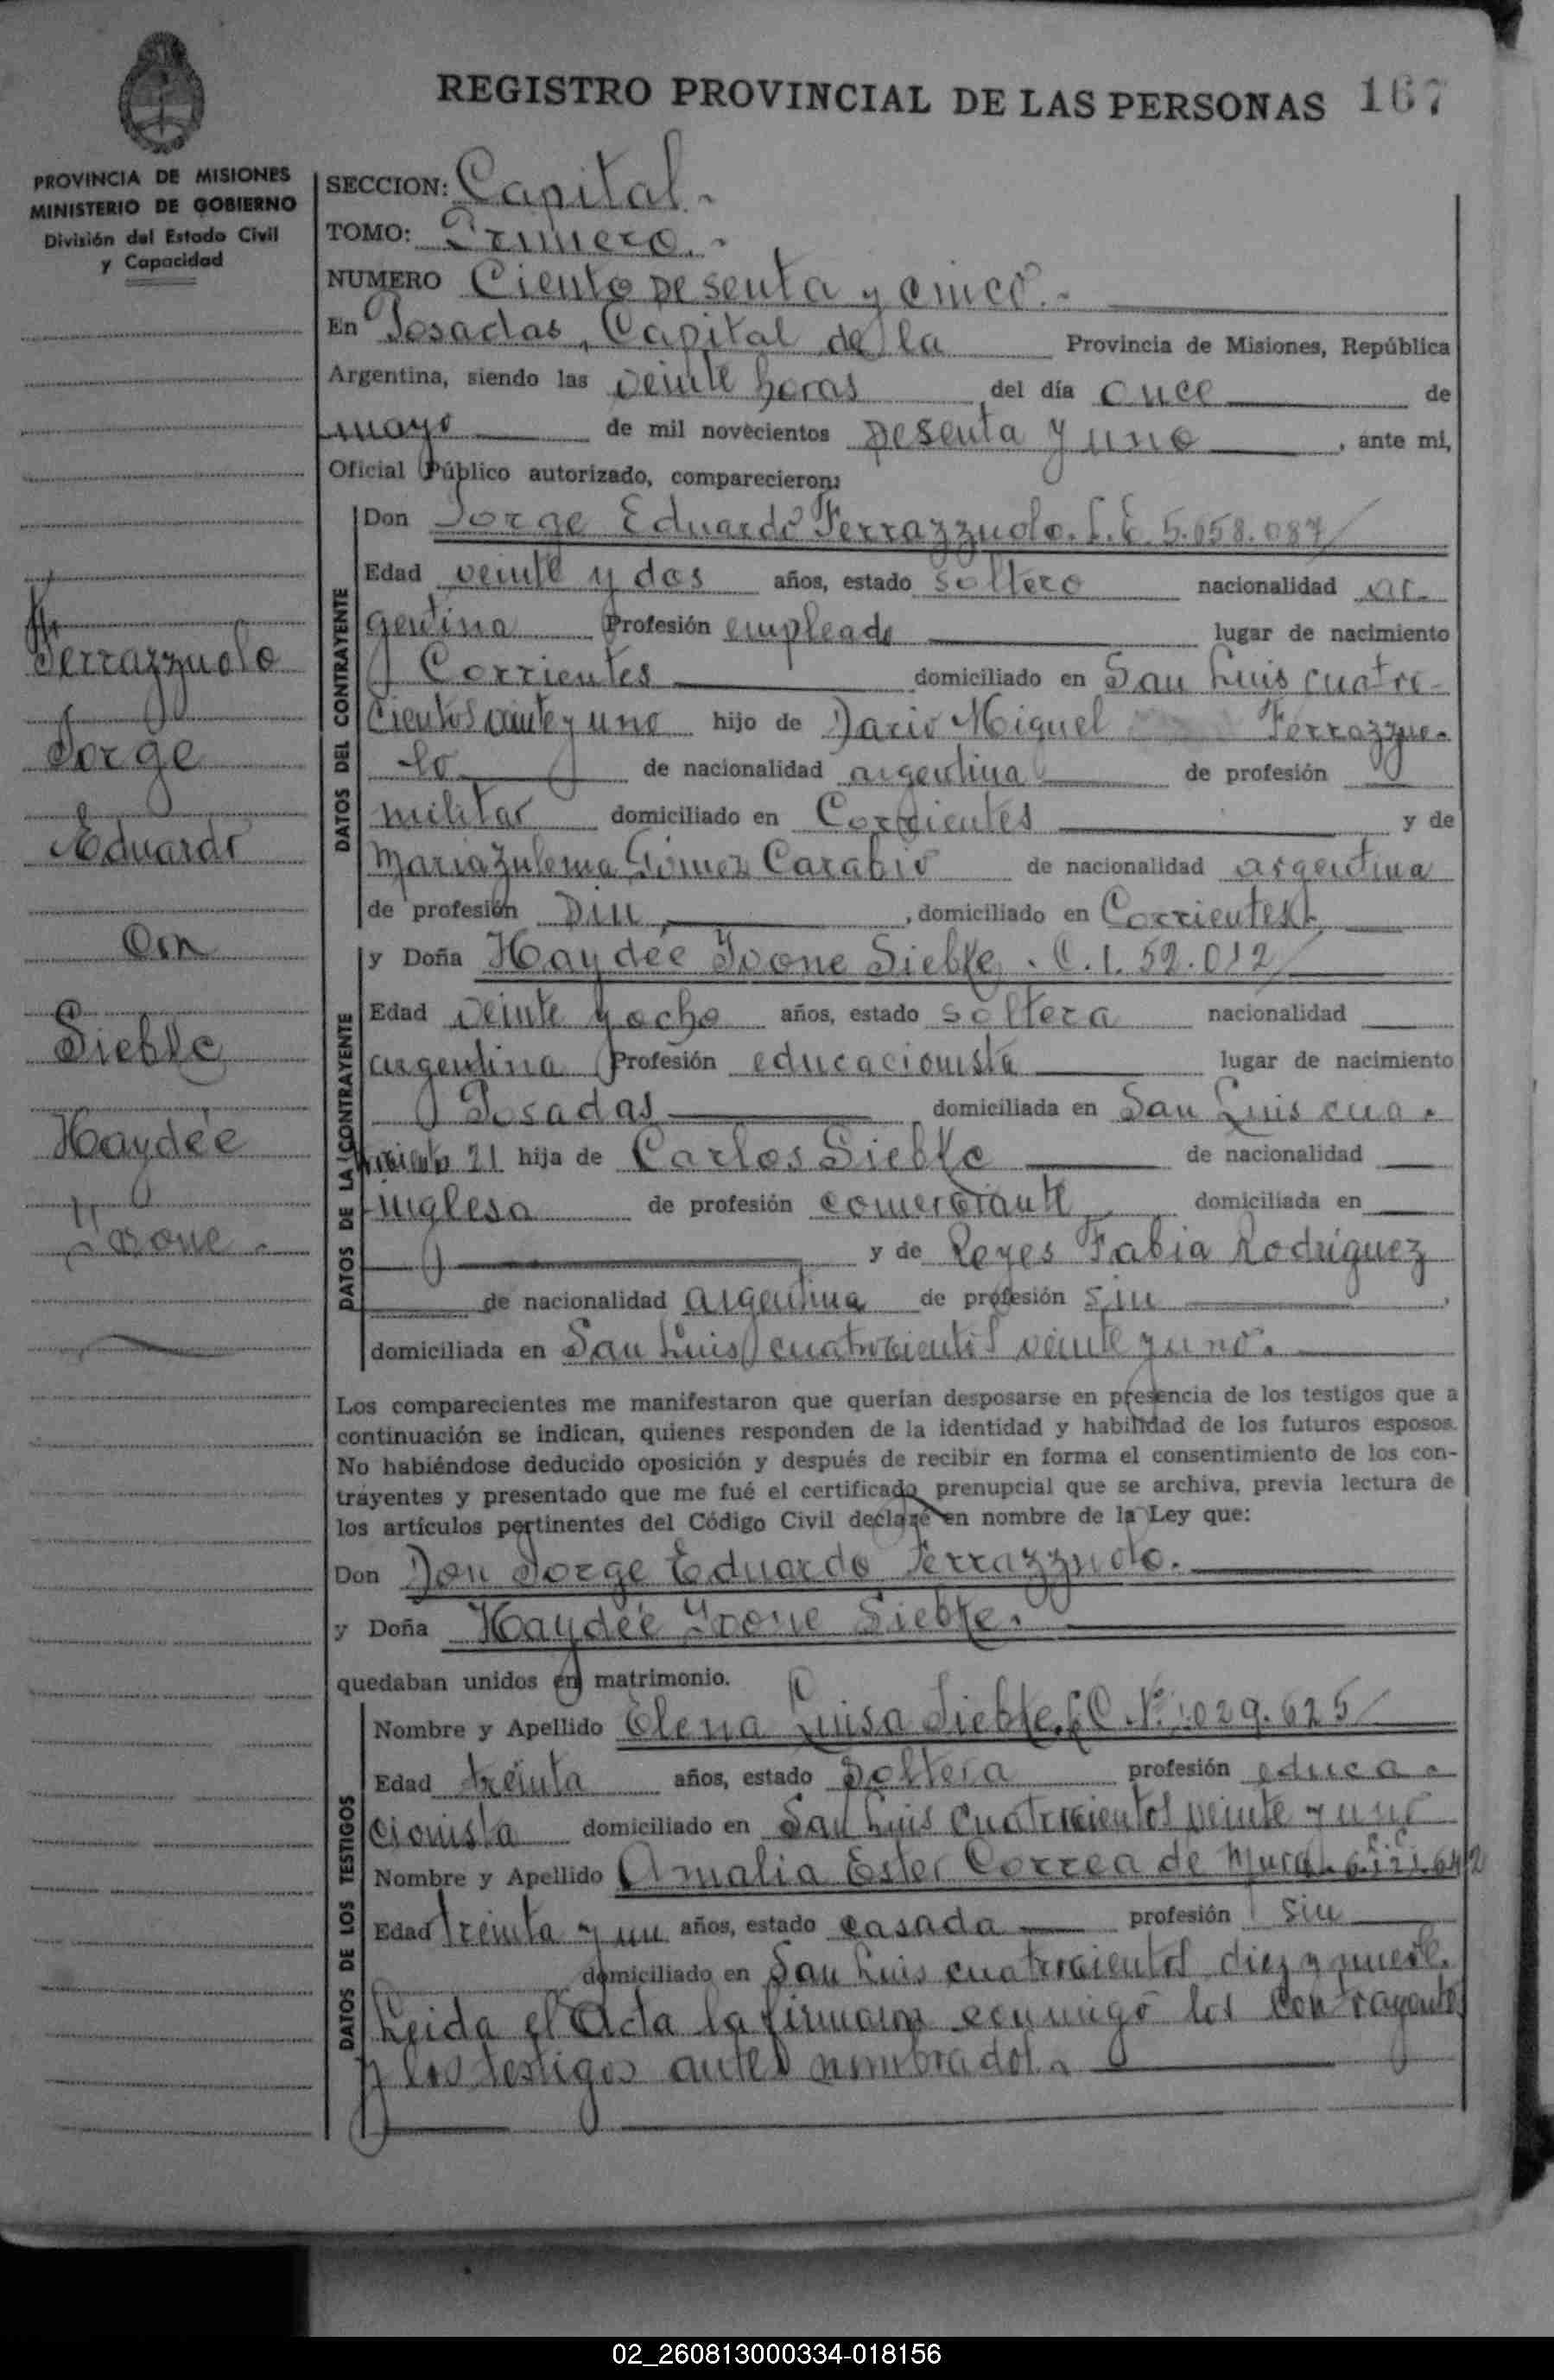 REGISTRO PROVINCIAL DE LAS PERSONAS 167
PROVINCIA DE MISIONES
MINISTERIO DE GOBIERNO
División del Estado Civil
y Capacidad
Ferrazzuolo
Jorge
Eduardo
con
Sieble
Haydée
Ivone.
SECCION: Capital.-
TOMO: Primero.-
NUMERO Ciento sesenta y cinco.-
En Posadas, Capital de la Provincia de Misiones, República
Argentina, siendo las veinte horas del día once de
mayo de mil novecientos sesenta y uno, ante mi,
Oficial Público autorizado, comparecieron:
DATOS DEL CONTRAYENTE
Don Jorge Eduardo Ferrazzuolo. L.E. 5.658.087/
Edad veinte y dos años, estado soltero nacionalidad ar-
gentina Profesión empleado lugar de nacimiento
Corrientes domiciliado en San Luis cuatro-
cientos veinte y uno hijo de Dario Miguel Ferrazzuo-
lo de nacionalidad argentina de profesión
militar domiciliado en Corrientes y de
Maria Zulema Gómez Carabio de nacionalidad argentina
de profesión sin, domiciliado en Corrientes
DATOS DE LA CONTRAYENTE
y Doña Haydée Ivone Sieble. C.I. 52.012/
Edad veinte y ocho años, estado soltera nacionalidad
argentina Profesión educacionista lugar de nacimiento
Posadas domiciliada en San Luis cua-
trociento 21 hija de Carlos Sieble de nacionalidad
inglesa de profesión comerciante domiciliada en
y de Reyes Fabia Rodríguez
de nacionalidad argentina de profesión sin,
domiciliada en San Luis cuatrocientos veinte y uno.
Los comparecientes me manifestaron que querían desposarse en presencia de los testigos que a
continuación se indican, quienes responden de la identidad y habilidad de los futuros esposos.
No habiéndose deducido oposición y después de recibir en forma el consentimiento de los con-
trayentes y presentado que me fué el certificado prenupcial que se archiva, previa lectura de
los artículos pertinentes del Código Civil declaré en nombre de la Ley que:
Don Don Jorge Eduardo Ferrazzuolo.
y Doña Haydée Ivone Sieble.
quedaban unidos en matrimonio.
DATOS DE LOS TESTIGOS
Nombre y Apellido Elena Luisa Sieble. L.C. N° 1.029.625/
Edad treinta años, estado soltera profesión educa-
cionista domiciliado en San Luis cuatrocientos veinte y uno
Nombre y Apellido Amalia Ester Correa de L.C. 6.121.642
Edad treinta y un años, estado casada profesión sin
domiciliado en San Luis cuatrocientos diez y nueve.
Leida el Acta la firmaron conmigo los contrayentes
y los testigos antes nombrados.-
02_260813000334-018156